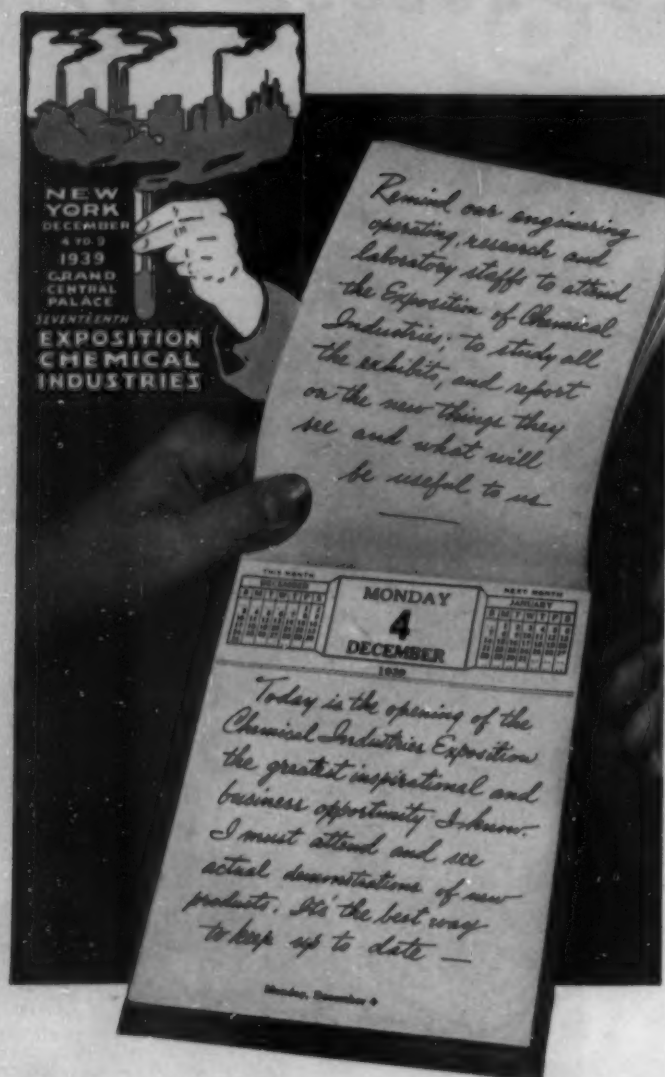 NEW
YORK
DECEMBER
4 TO 9
1939
GRAND
CENTRAL
PALACE
SEVENTEENTH
EXPOSITION
CHEMICAL
INDUSTRIES
Remind our engineering
operating, research and
laboratory staffs to attend
the Exposition of Chemical
Industries; to study all
the exhibits, and report
on the new things they
see and what will
be useful to us
THIS MONTH
DECEMBER
S M T W T F S
MONDAY
4
DECEMBER
1939
NEXT MONTH
JANUARY
S M T W T F S
Today is the opening of the
Chemical Industries Exposition
the greatest inspirational and
business opportunity I know.
I must attend and see
actual demonstrations of new
products. It's the best way
to keep up to date —
Monday, December 4